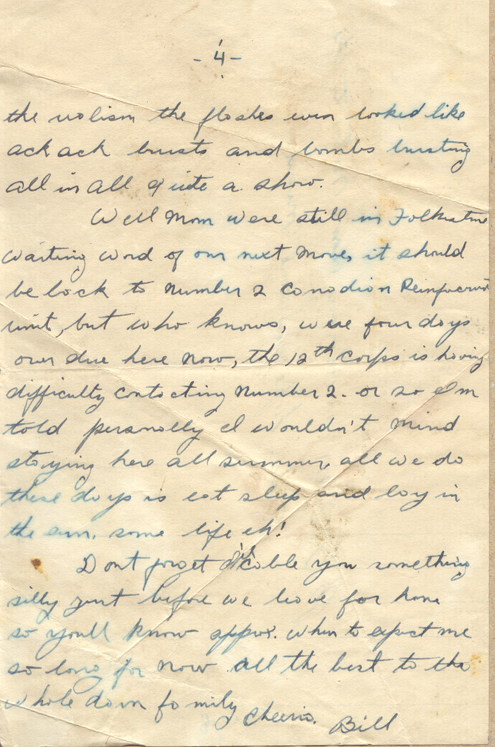 - 4 -
the the flashes even looked like
ack ack bursts and bombs bursting
all in all quite a show.
Well Mom were still in Folkstone
waiting word of our next move, it should
be back to Number 2 Canadian
unit, but who knows, were four days
over due here now, the 12th corps is having
difficulty contacting Number 2. or so I'm
told personally I wouldn't mind
staying here all summer, all we do
these days is eat sleep and lay in
the sun. some life eh!
Dont forget I'll cable you something
silly just before we leave for home
so youll know appox. when to expect me
so long for now all the best to the
whole darn family cheerio. Bill